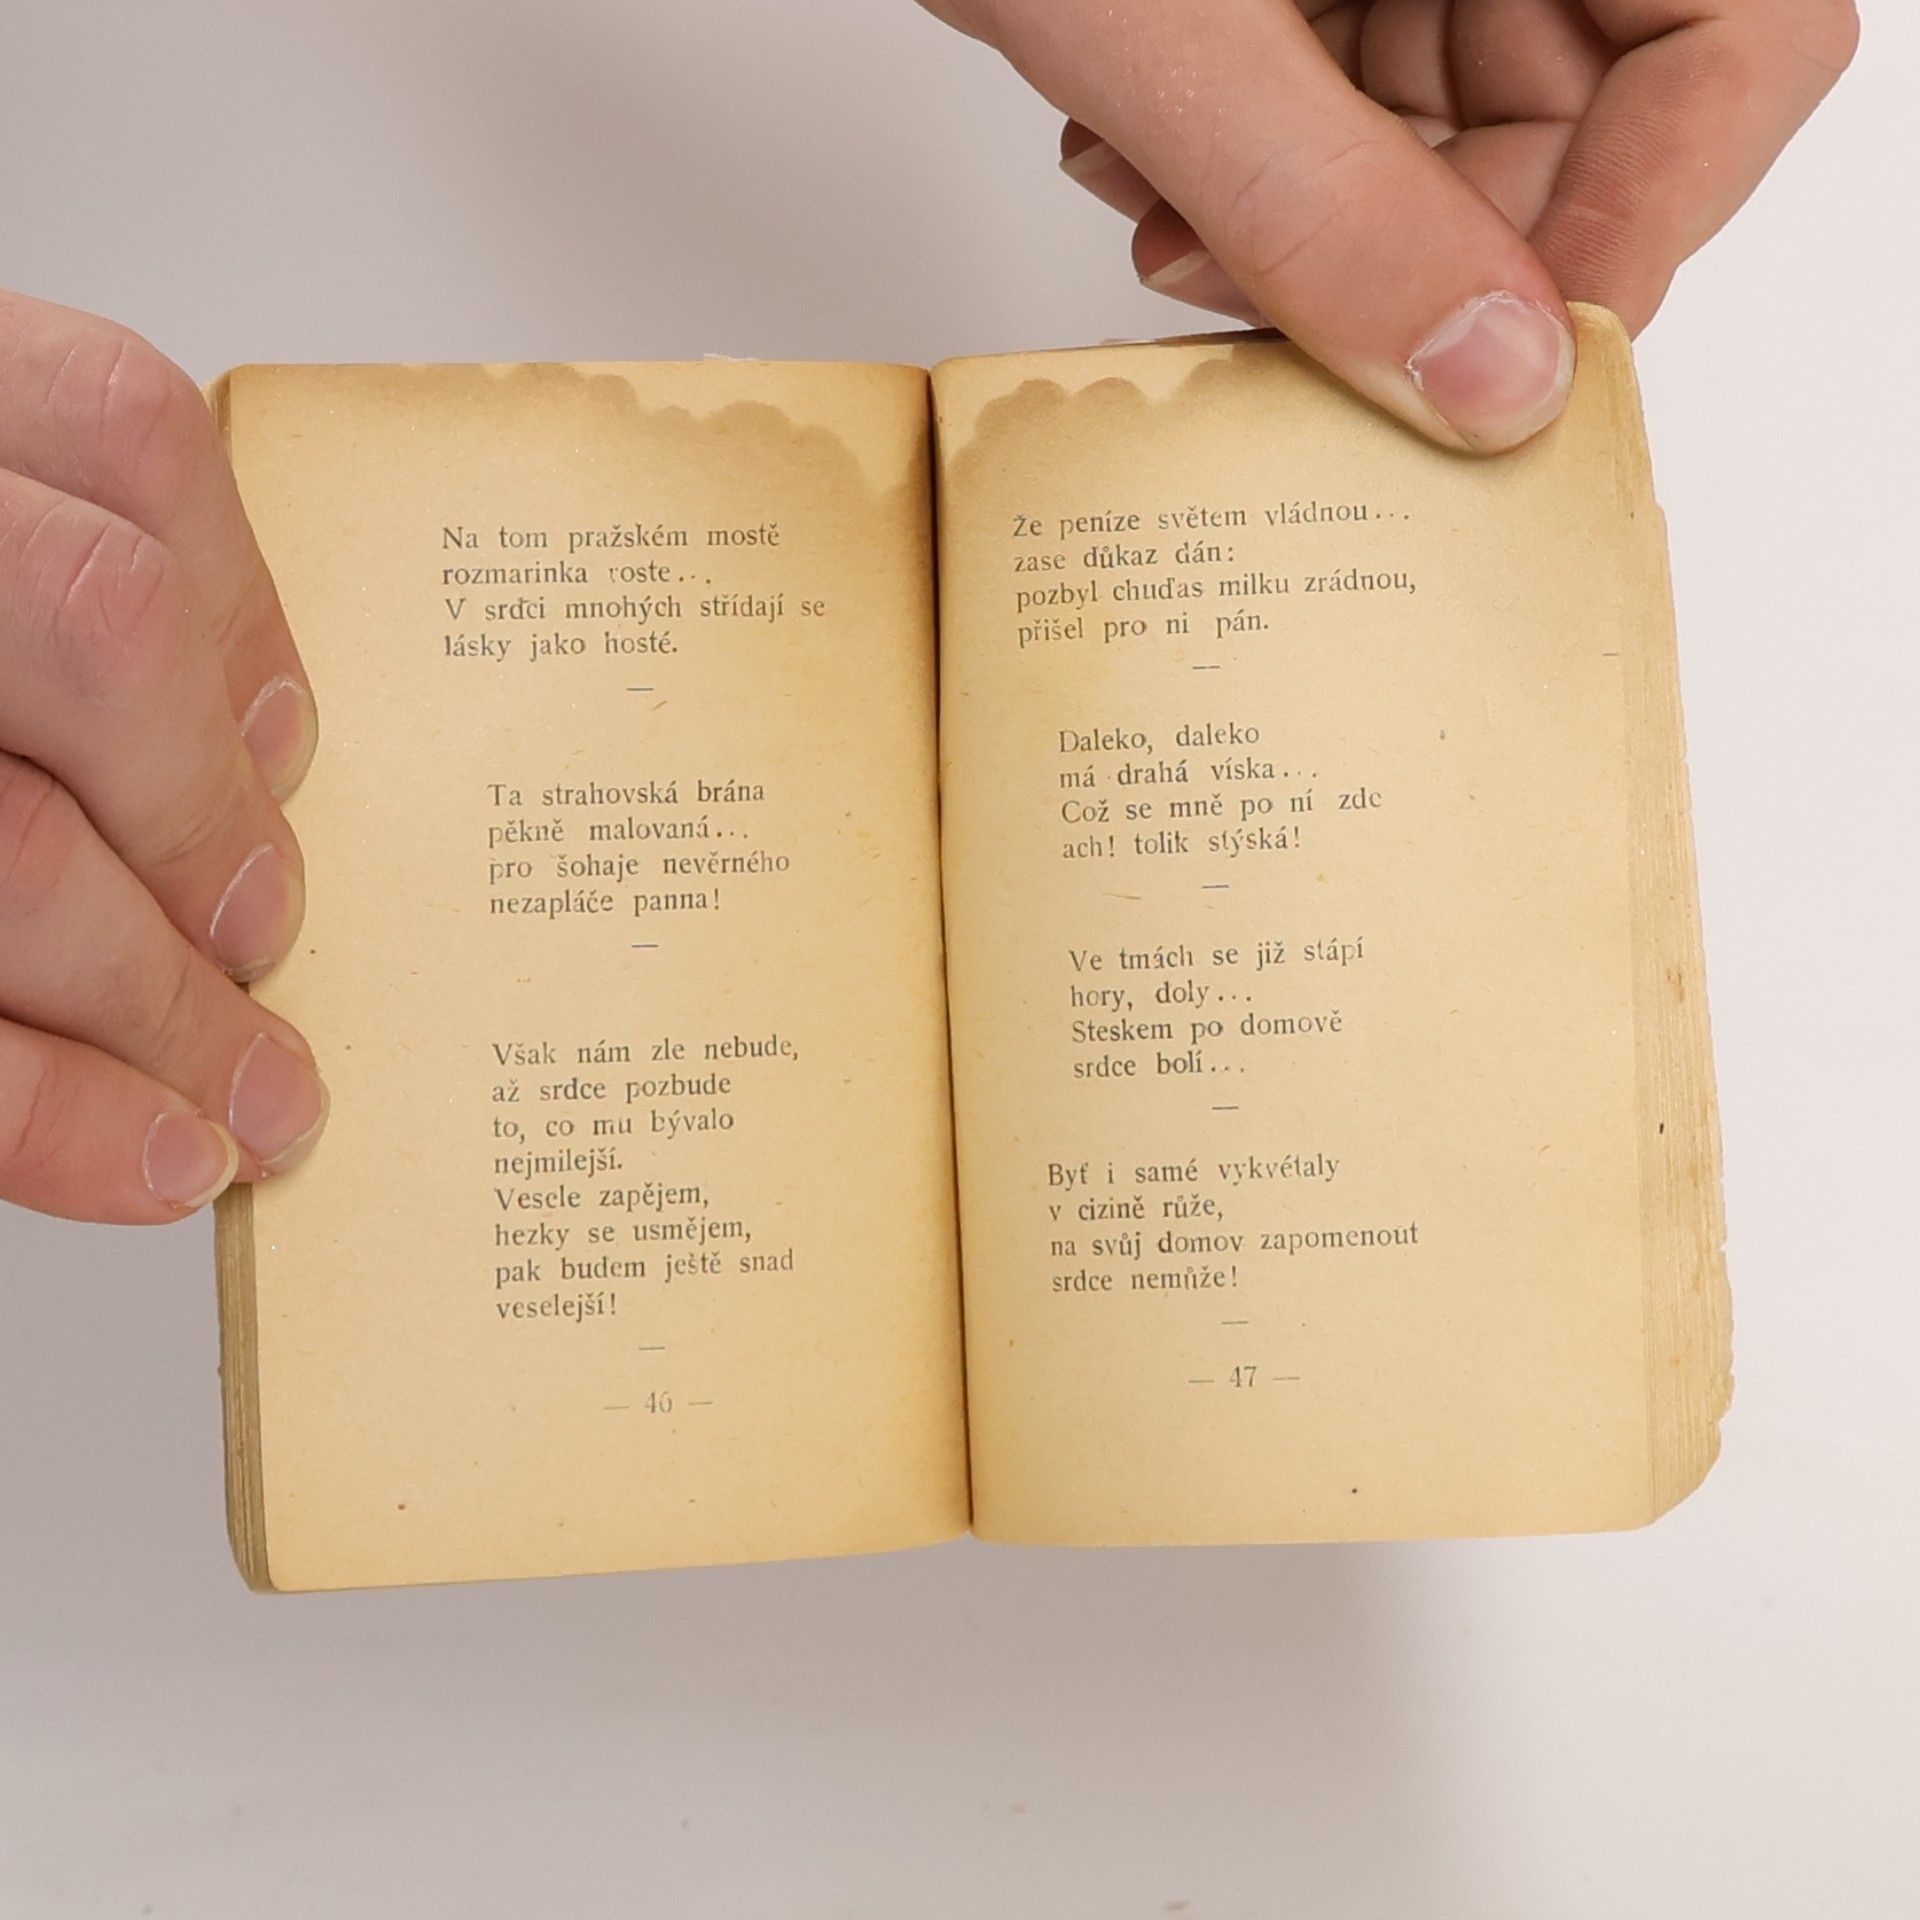 Na tom pražském mostě
rozmarinka roste...
V srdci mnohých střídají se
lásky jako hosté.
—
Ta strahovská brána
pěkně malovaná...
pro šohaje nevěrného
nezapláče panna!
—
Však nám zle nebude,
až srdce pozbude
to, co mu bývalo
nejmilejší.
Vesele zapějem,
hezky se usmějem,
pak budem ještě snad
veselejší!
—
— 46 —
Že peníze světem vládnou...
zase důkaz dán:
pozbyl chuďas milku zrádnou,
přišel pro ni pán.
—
Daleko, daleko
má drahá víska...
Což se mně po ní zde
ach! tolik stýská!
—
Ve tmách se již stápí
hory, doly...
Steskem po domově
srdce bolí...
—
Byť i samé vykvétaly
v cizině růže,
na svůj domov zapomenout
srdce nemůže!
—
— 47 —